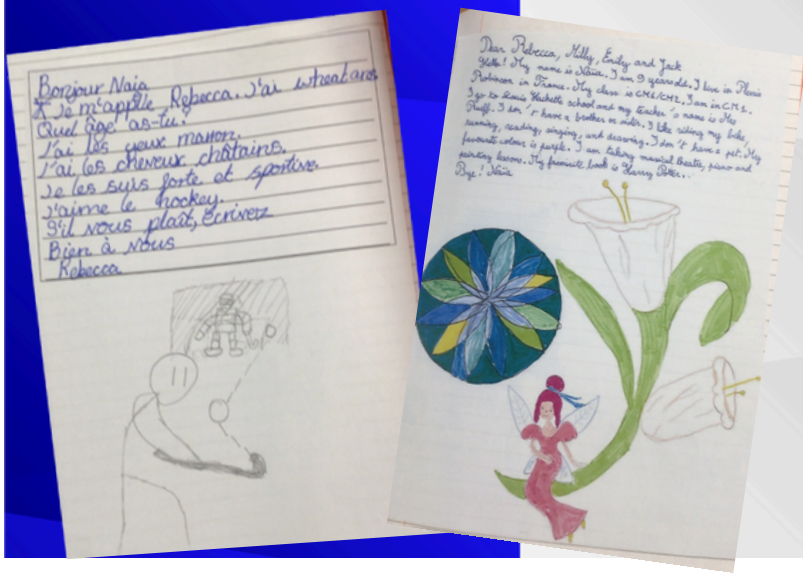 Bonjour Naia
Je m'applle Rebecca. J'ai
Quel âge as-tu?
J'ai les yeux marron.
J'ai les cheveux châtains.
Je les suis forte et sportive.
J'aime le hockey.
S'il vous plaît, écrivez
Bien à vous
Rebecca
Dear Rebecca, Milly, Emily and Jack
Hello! My name is Naia. I am 9 years old. I live in Plessis
Robinson in France. My class is CM1/CM2. I am in CM1.
I go to Louis Hachette school and my teacher's name is Mrs
I don't have a brother or sister. I like riding my bike,
running, reading, singing, and drawing. I don't have a pet. My
favourite colour is purple. I am taking musical theatre, piano and
painting lessons. My favorite book is Harry Potter..
Bye! Naia